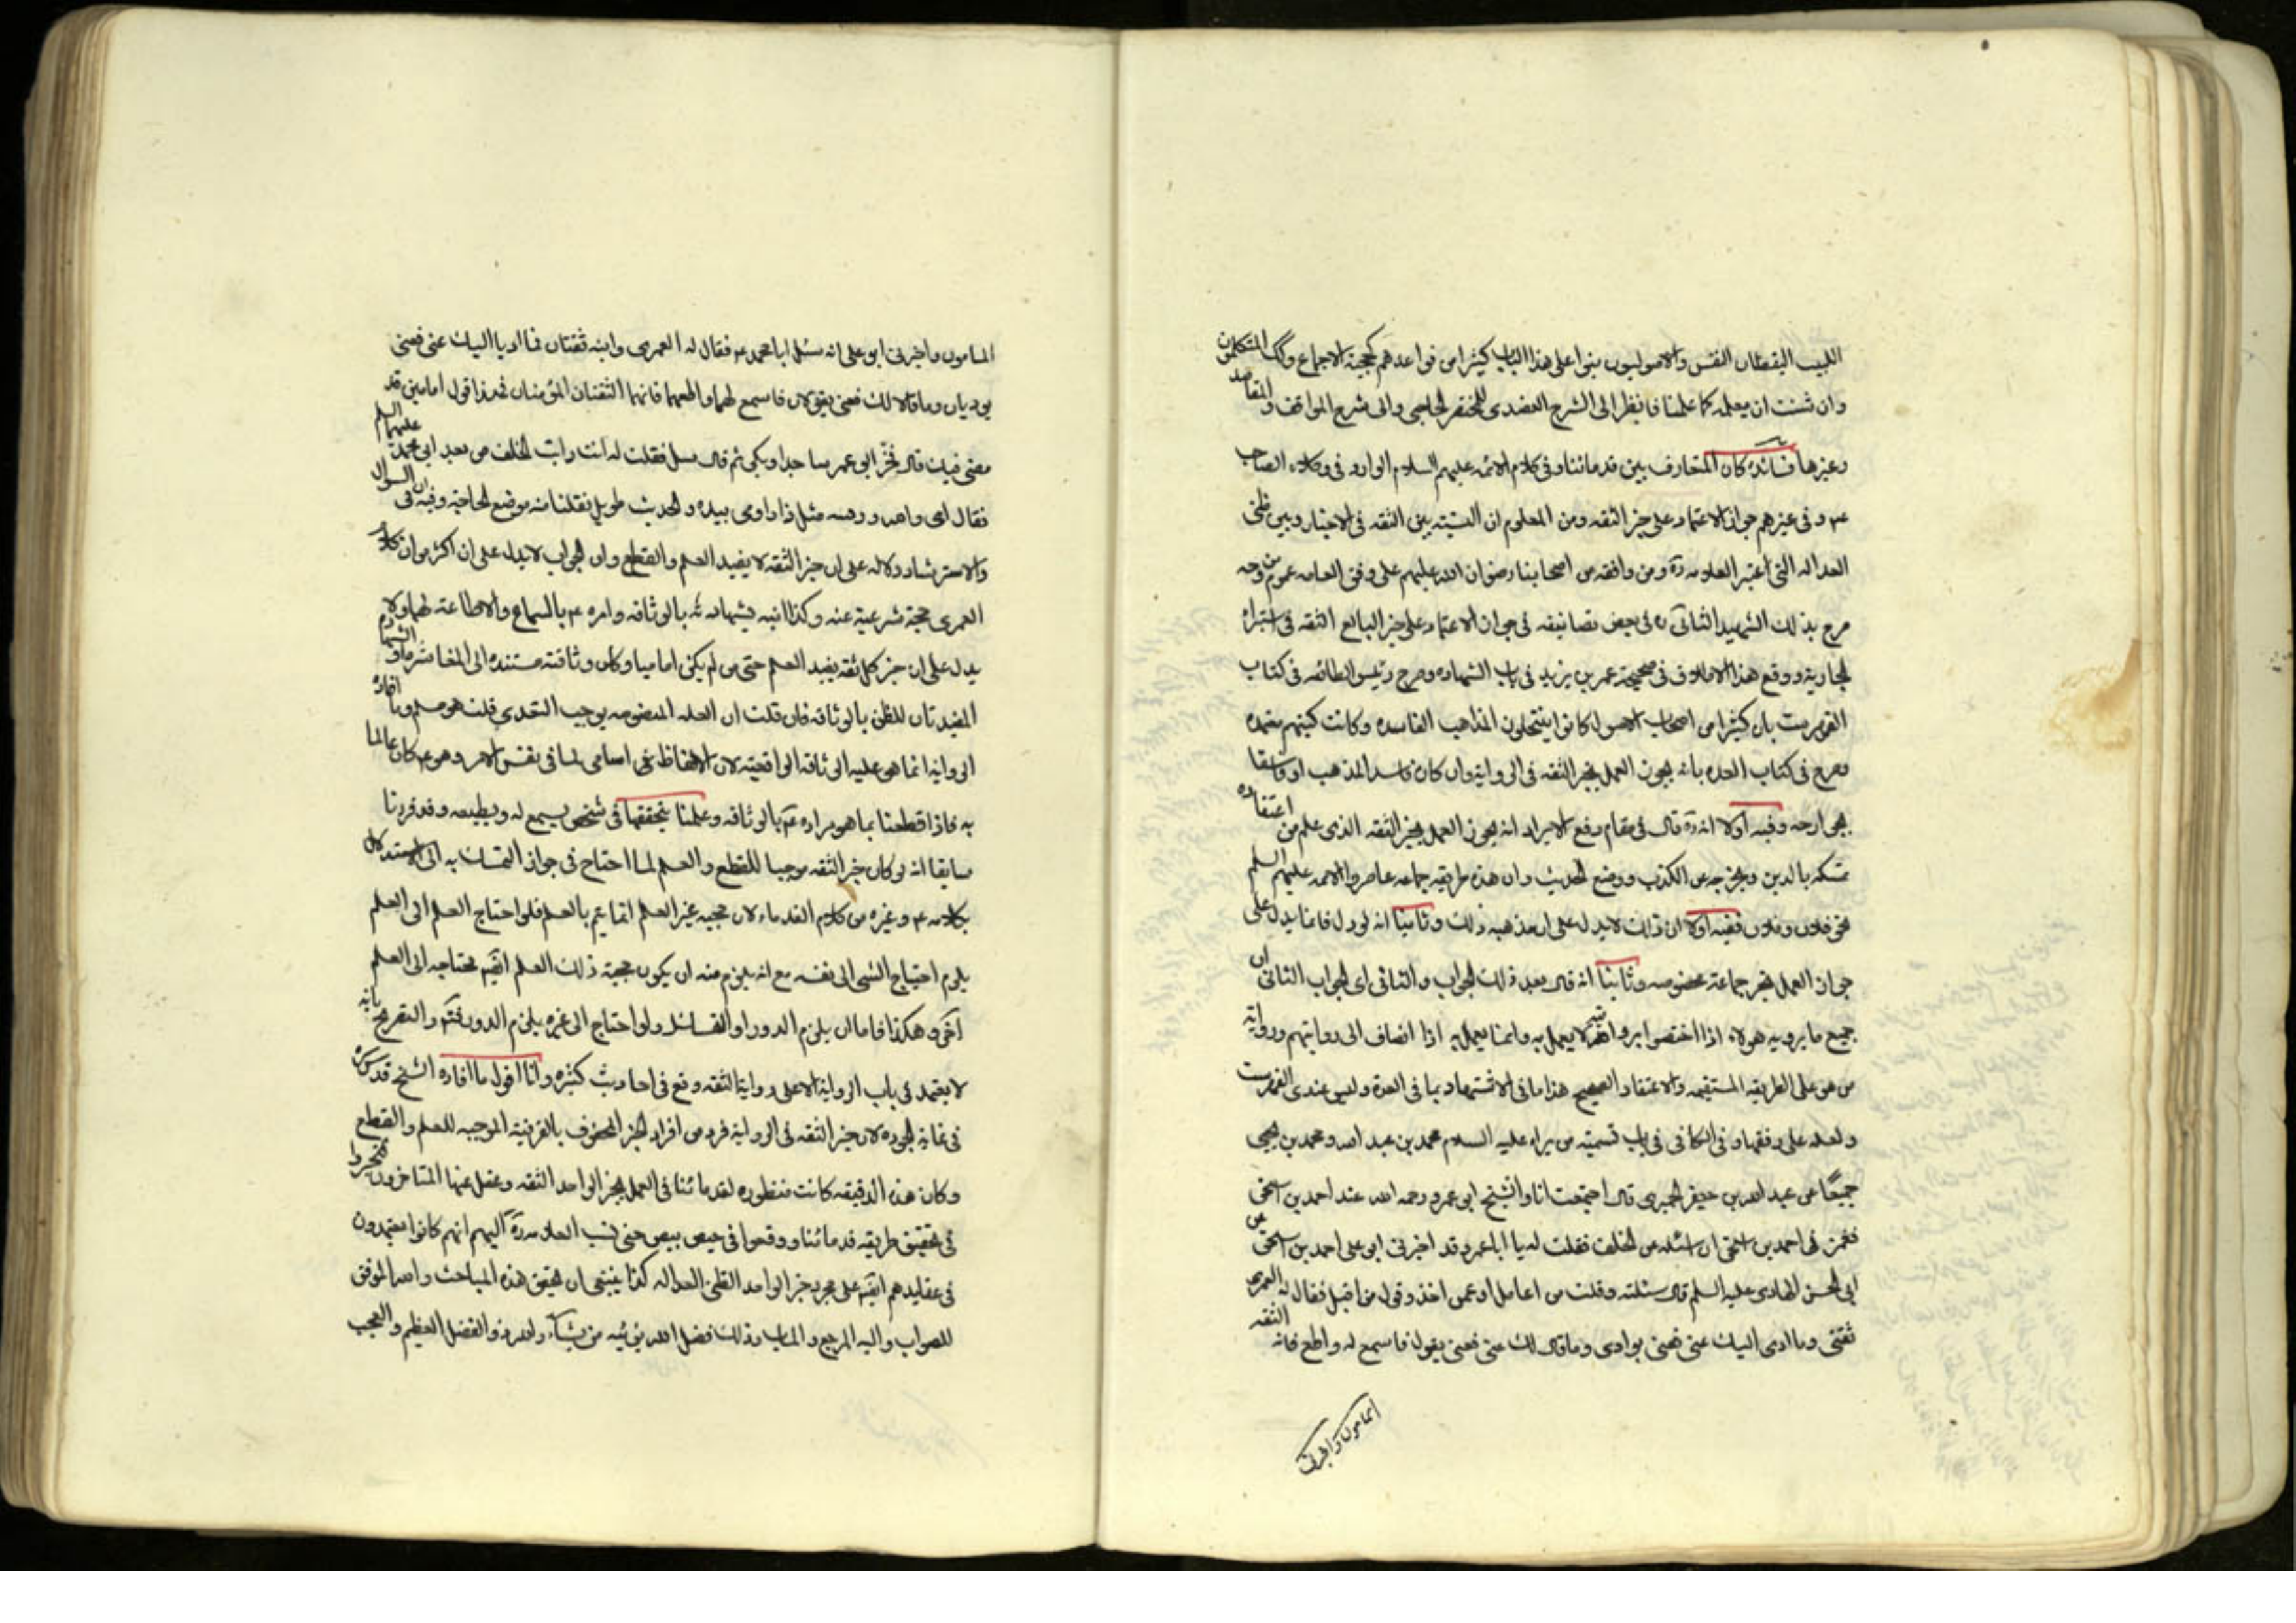 اللبيب اليقظان النفس والاصوليون بنوا على هذا الباب كثيرا من قواعدهم كحجية الاجماع وكك المتكلمون
وان شئت ان تعلمه كما علمنا فانظر الى الشرح العضدى للمختصر الحاجبى والى شرح المواقف والمقاصد
وغيرها فائدة كان المتعارف بين قدمائنا وفى كلام الائمه عليهم السلام الوارد فى وكلاء الصاحب
ع م وفى غيرهم جواز الاعتماد على خبر الثقه ومن المعلوم ان النسبته بين الثقه فى الاخبار وبين ظنى
العداله التى اعتبر العلامه ره ومن وافقه من اصحابنا رضوان الله عليهم على وفق العامه عموم من وجه
صرح بذلك الشهيد الثانى ره فى بعض تصانيفه فى جواز الاعتماد على خبر البايع الثقه فى استبراء
الجارية ووقع هذا الاطلاق فى صحيحة عمر بن يزيد فى باب الشهاده وصرح رئيس الطائفه فى كتاب
الفهرست بان كثيرا من اصحاب الاصول كانوا ينتحلون المذاهب الفاسده وكانت كتبهم معتمده
وصرح فى كتاب العده بانه يجوز العمل بخبر الثقه فى الرواية وان كان فاسد المذهب او فاسقا
بجوارحه وفيه اولا انه ره قال فى مقام دفع الايراد انه يجوز العمل بخبر الثقه الذى علم من اعتقاده
تمسكه بالدين وتحرجه عن الكذب ووضع الحديث وان هذه طريقه جماعه عاصروا الائمه عليهم السلم
نحو فلان وفلان ففيه اولا ان ذلك لا يدل على ان مذهبه ذلك وثانيا انه لو دل فانما يدل على
جواز العمل بخبر جماعة مخصوصه وثانيا انه قال بعد ذلك الجواب والثانى اى الجواب الثانى ان
جميع ما يرويه هولاء اذا اختصوا بروايته لا يعمل به وانما يعمل به اذا انضاف الى روايتهم رواية
من هو على الطريقه المستقيمه والاعتقاد الصحيح هذا ما فى الاشتهاد بما فى العدة وليس عندى الفهرست
ولعله على وفقها وفى الكافى فى باب تسمية من راه عليه السلام محمد بن عبد الله ومحمد بن يحيى
جميعا عن عبد الله بن جعفر الحميرى قال اجتمعت انا والشيخ ابى عمرو رحمه الله عند احمد بن اسحق
فغمز نى احمد بن اسحق ان اسئله عن الخلف فقلت له يا ابا عمرو قد اخبرنى ابو على احمد بن اسحق عن
ابى الحسن الهادى عليه السلم قال سئلته وقلت من اعامل او عمن اخذ وقول من اقبل فقال له العمرى
ثقتى وما ادى اليك عنى فعنى يوادى وما قال لك عنى فعنى يقول فاسمع له واطع فانه الثقه
المامون واخبرنى
المامون واخبرنى ابو على انه سئل ابا محمد ع م فقال له العمرى وابنه ثقتان فما اديا اليك عنى فعنى
يوديان وما قالا لك فعنى يقولان فاسمع لهما واطعهما فانهما الثقتان المؤمنان فهذا قول امامين قد
مضى فيك قال فخر ابى عمرو ساجدا وبكى ثم قال سل فقلت له انت رايت الخلف من بعد ابى محمد عليهما السلم
فقال اى والله ورقبه مثل ذا واومى بيده والحديث طويل نقلنا منه موضع الحاجة وفيه فى ان السوال
والاسترشاد دلاله على ان خبر الثقه لا يفيد العلم والقطع وان الجواب لا يدل على ان اكثر من ان كلام
العمرى حجة شرعية عنه وكذا ابنه بشهادته بالوثاقه وامره ع م بالسماع والاطاعة لهما ولا
يدل على ان خبر كل ثقه يفيد العلم حتى من لم يكن اماميا وكان وثاقته مستنده الى المعاشره او الشهادة
المفيدتان للظن بالوثاقه فان قلت ان العله المنصوصه يوجب التعدى قلت هو مسلم وما افاده
الروايه انما هو عليه الوثاقه الواقعيته لان الالفاظ هى اسامى لما فى نفس الامر وهو ع م كان عالما
به فاذا قطعنا بما هو مراده ع م بالوثاقه وعلمنا بتحققها فى شخص يسمع له ويطيعه وقد قررنا
سابقا انه لو كان خبر الثقه موجبا للقطع والعلم لما احتاج فى جواز التمسك به الى الاستدلال
بكلامه ع م وغيره من كلام القدماء لان حجيه غير العلم انما يتم بالعلم فلو احتاج العلم الى العلم
يلزم احتياج الشى الى نفسه مع انه يلزم منه ان يكون حجية ذلك العلم ايضم محتاجه الى العلم
آخر وهكذا فاما ان يلزم الدور او التسلسل ولو احتاج الى غيره يلزم الدور فتم والتصريح بانه
لا يعتمد فى باب الرواية الا على رواية الثقه وقع فى احاديث كثيره وانا اقول ما افاده الشيخ قدس سره
فى غاية الجوده لان خبر الثقه فى الرواية فرد من افراد الخبر المحفوف بالقرينة الموجبه للعلم والقطع
وكان هذه الدقيقه كانت منظوره لقدمائنا فى العمل بخبر الواحد الثقه وغفل عنها المتاخرون فتحيروا
فى تحقيق طريقه قدمائنا ووقعوا فى حيص بيص حتى نسب العلامه ره اليهم انهم كانوا يعتمدون
فى عقايدهم ايضم على مجرد خبر الواحد الظنى العداله كذا ينبغى ان يحقق هذه المباحث والله الموفق
للصواب واليه المرجع والماب وذلك فضل الله يوتيه من يشاء والله ذو الفضل العظيم والعجب